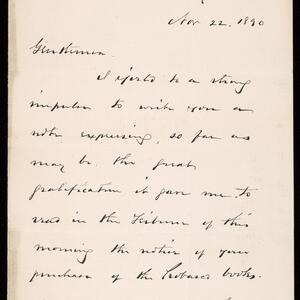 Nov 22, 1890
Gentlemen.
I yield to a strong
impulse to write you a
note expressing, so far as
may be, the great
gratification it gave me to
read in the Tribune of this
morning the notice of your
purchase of the books.